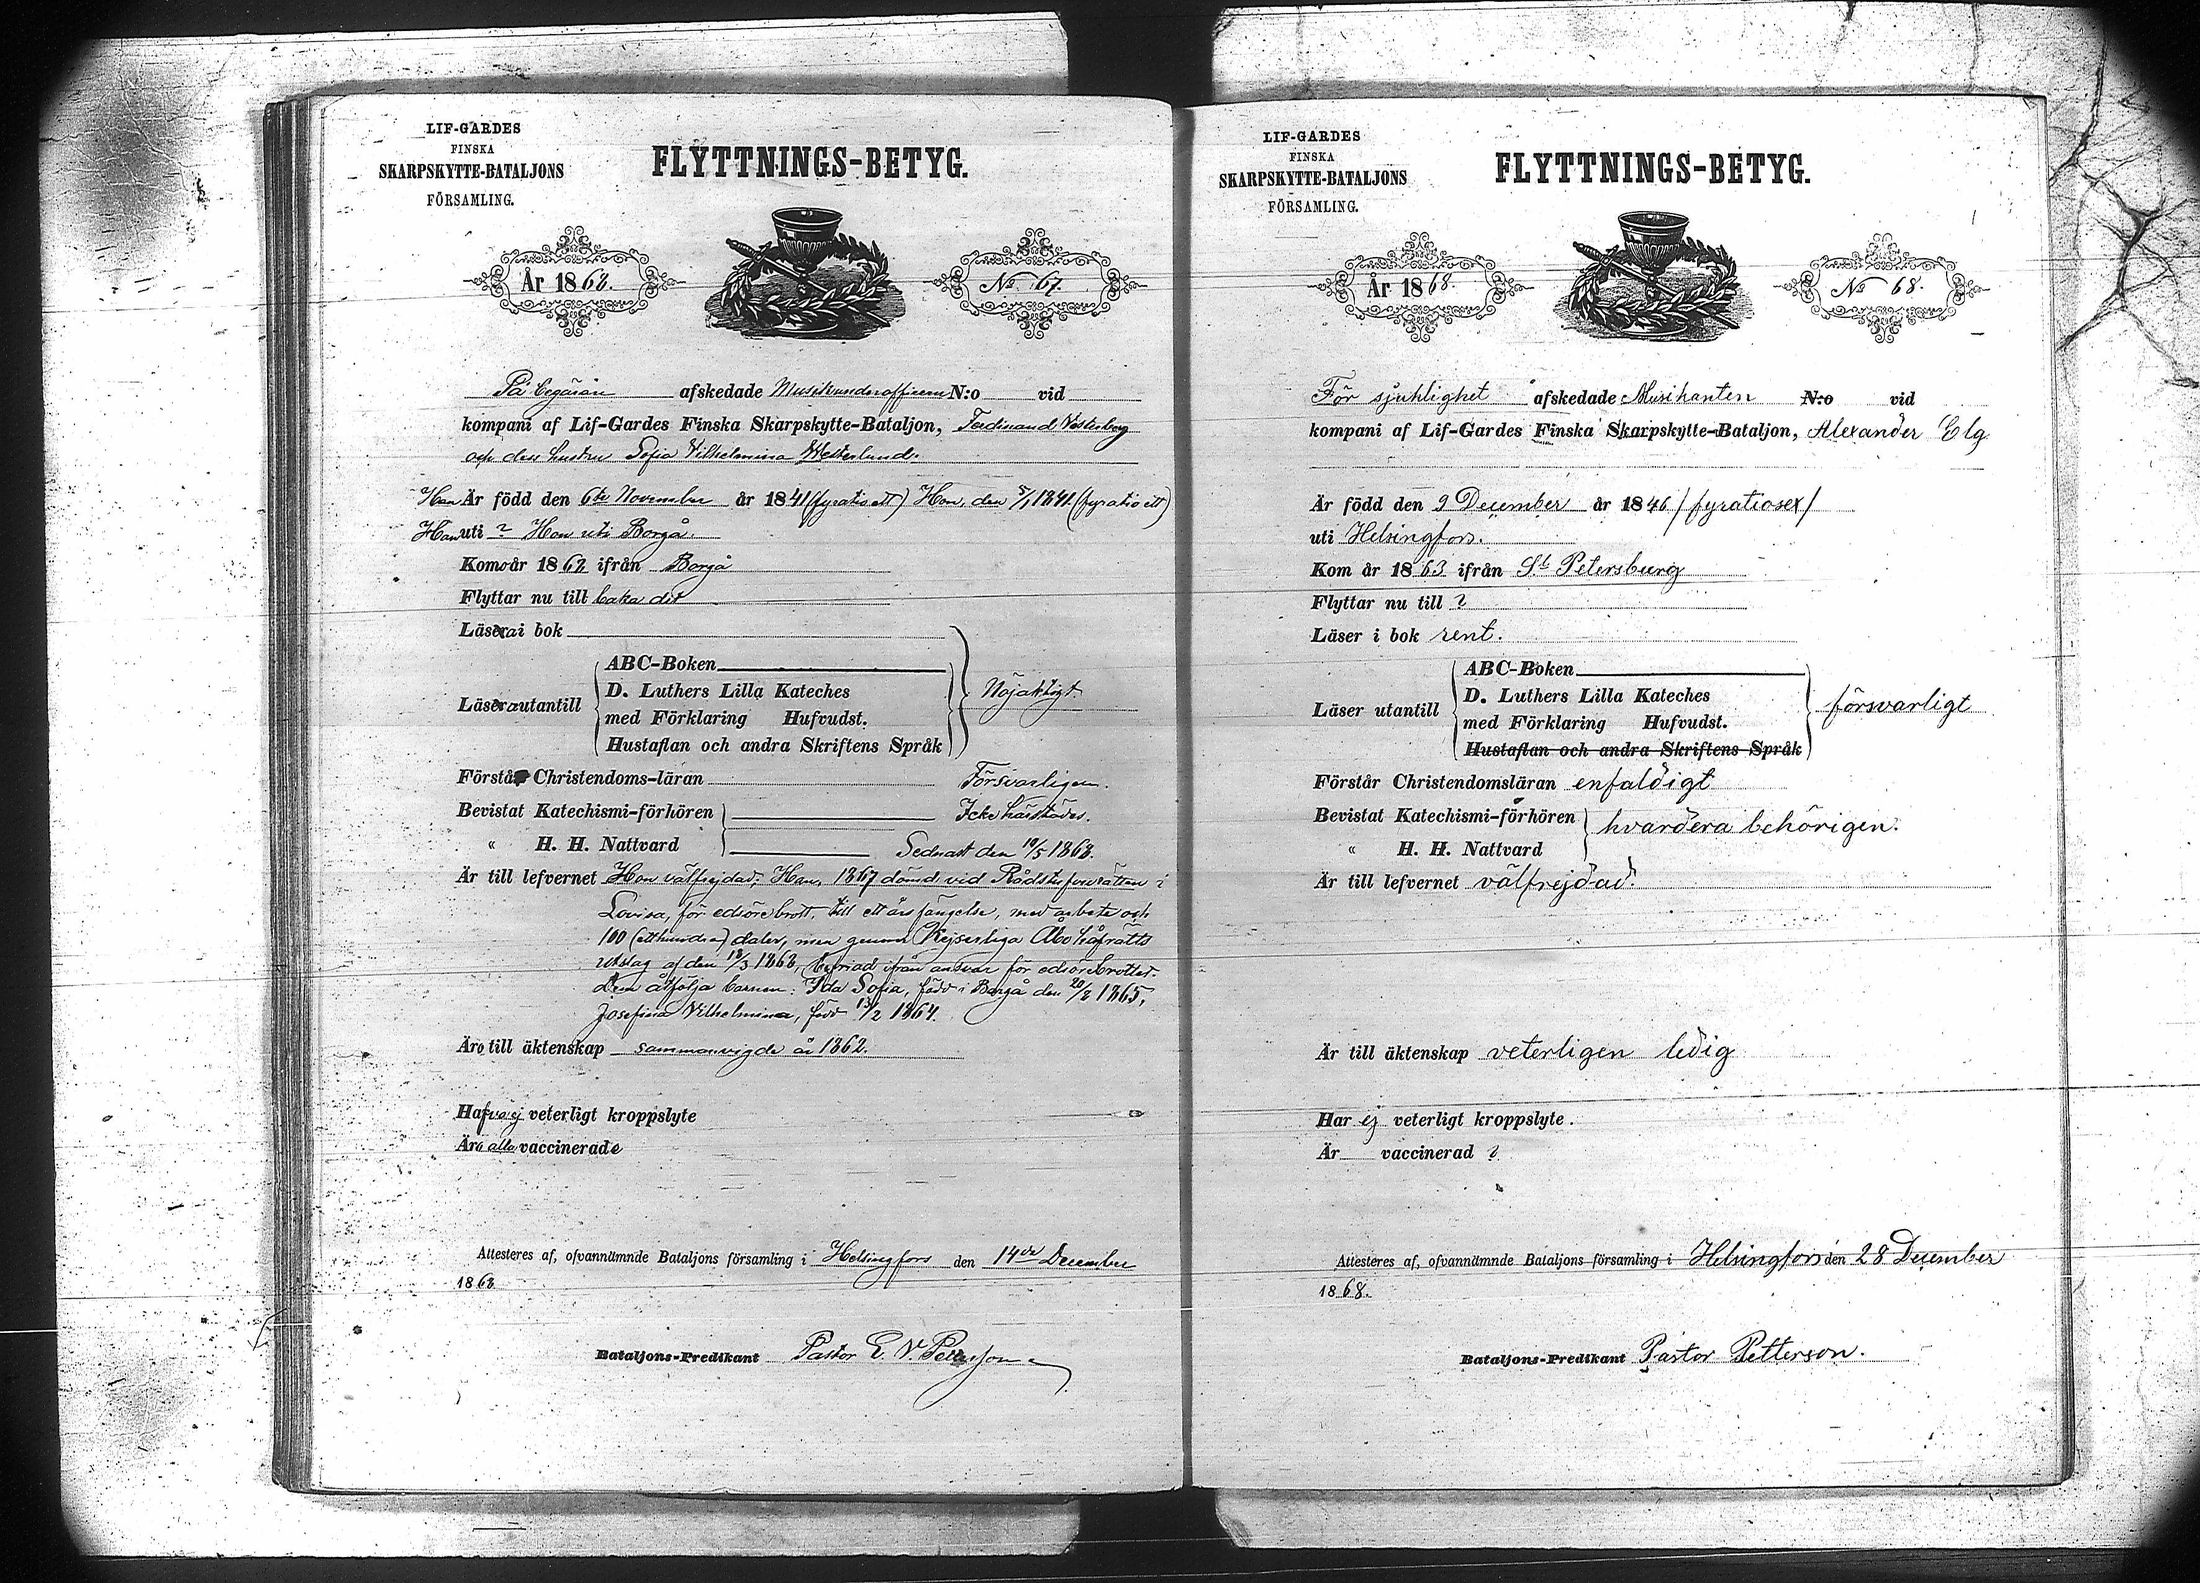 LIF-GARDES
FINSKA
SKARPSKYTTE-BATALJONS
FÖRSAMLING.
FLYTTNINGS-BETYG.
År 1868.
No 67.
På begäran afskedade Musikunderofficern N:o vid
kompani af Lif-Gardes Finska Skarpskytte-Bataljon, Ferdinand Vesterberg
och dess hustru Sofia Vilhelmina Westerlund.
Han Är född den 6te November år 1841 (fyratioett) Hon, den 5/1 1841 (fyratioett)
Han uti ? Hon uti Borgå.
Komo år 1862 ifrån Borgå
Flyttar nu till baka dit
Läsa i bok
Läsa utantill
ABC-Boken
D. Luthers Lilla Kateches
med Förklaring Hufvudst.
Hustaflan och andra Skriftens Språk
Nöjaktigt
Förstå Christendoms-läran Försvarligen.
Bevistat Katechismi-förhören Icke härstädes.
" H. H. Nattvard Sednast den 10/5 1868.
Är till lefvernet Hon välfrejdad; Han, 1867 dömd vid Rådstufvurätten i
Lovisa, för edsöre brott, till ett års fängelse, med arbete och
100 (etthundra) daler, men genom Kejserliga Åbo Hofrätts
utslag af den 18/3 1868, befriad ifrån ansvar för edsörebrottet.
Dem åtfölja barnen: Ida Sofia, född i Borgå den 20/2 1865,
Josefina Vilhelmina, född 13/2 1864.
Äro till äktenskap sammanvigde år 1862.
Hafva ej veterligt kroppslyte
Äro alla vaccinerade
Attesteres af, ofvannämnde Bataljons församling i Helsingfors den 14de December
1868
Bataljons-Predikant Pastor E. V. Petterson
LIF-GARDES
FINSKA
SKARPSKYTTE-BATALJONS
FÖRSAMLING.
FLYTTNINGS-BETYG.
År 1868.
No 68.
För sjuklighet afskedade Musikanten N:o vid
kompani af Lif-Gardes Finska Skarpskytte-Bataljon, Alexander Elg
Är född den 9 December år 1846 /fyratiosex/
uti Helsingfors.
Kom år 1863 ifrån St Petersburg
Flyttar nu till ?
Läser i bok rent.
Läser utantill
ABC-Boken
D. Luthers Lilla Kateches
med Förklaring Hufvudst.
Hustaflan och andra Skriftens Språk
försvarligt
Förstår Christendomsläran enfaldigt
Bevistat Katechismi-förhören
" H. H. Nattvard
hvardera behörigen.
Är till lefvernet välfrejdad.
Är till äktenskap veterligen ledig
Har ej veterligt kroppslyte.
Är vaccinerad ?
Attesteres af, ofvannämnde Bataljons församling i Helsingfors den 28 December
1868.
Bataljons-Predikant Pastor Petterson.